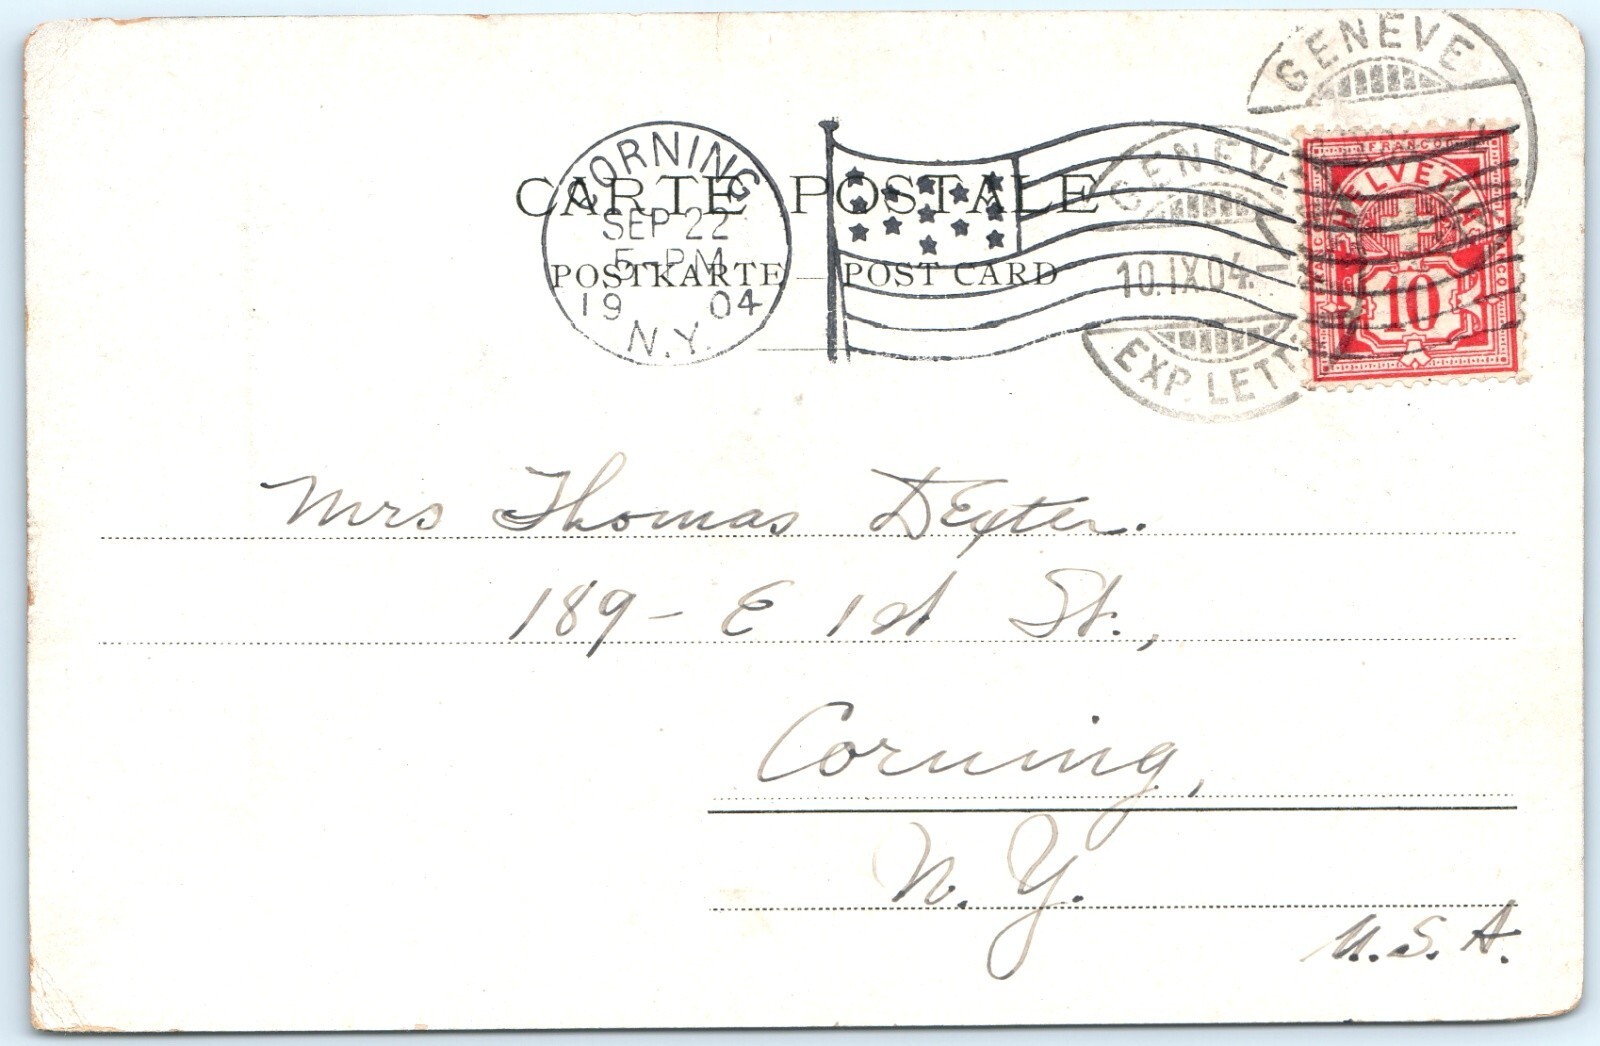 GENEVE
CORNING
SEP 22
5-PM
19 04
N.Y.
CARTE POSTALE
POSTKARTE — POST CARD
GENEVE
10.IX.04.—
EXP. LETT
FRANCO
HELVETIA
10
Mrs Thomas Dexter.
189 - E 1st St.,
Corning,
N. Y.
U.S.A.